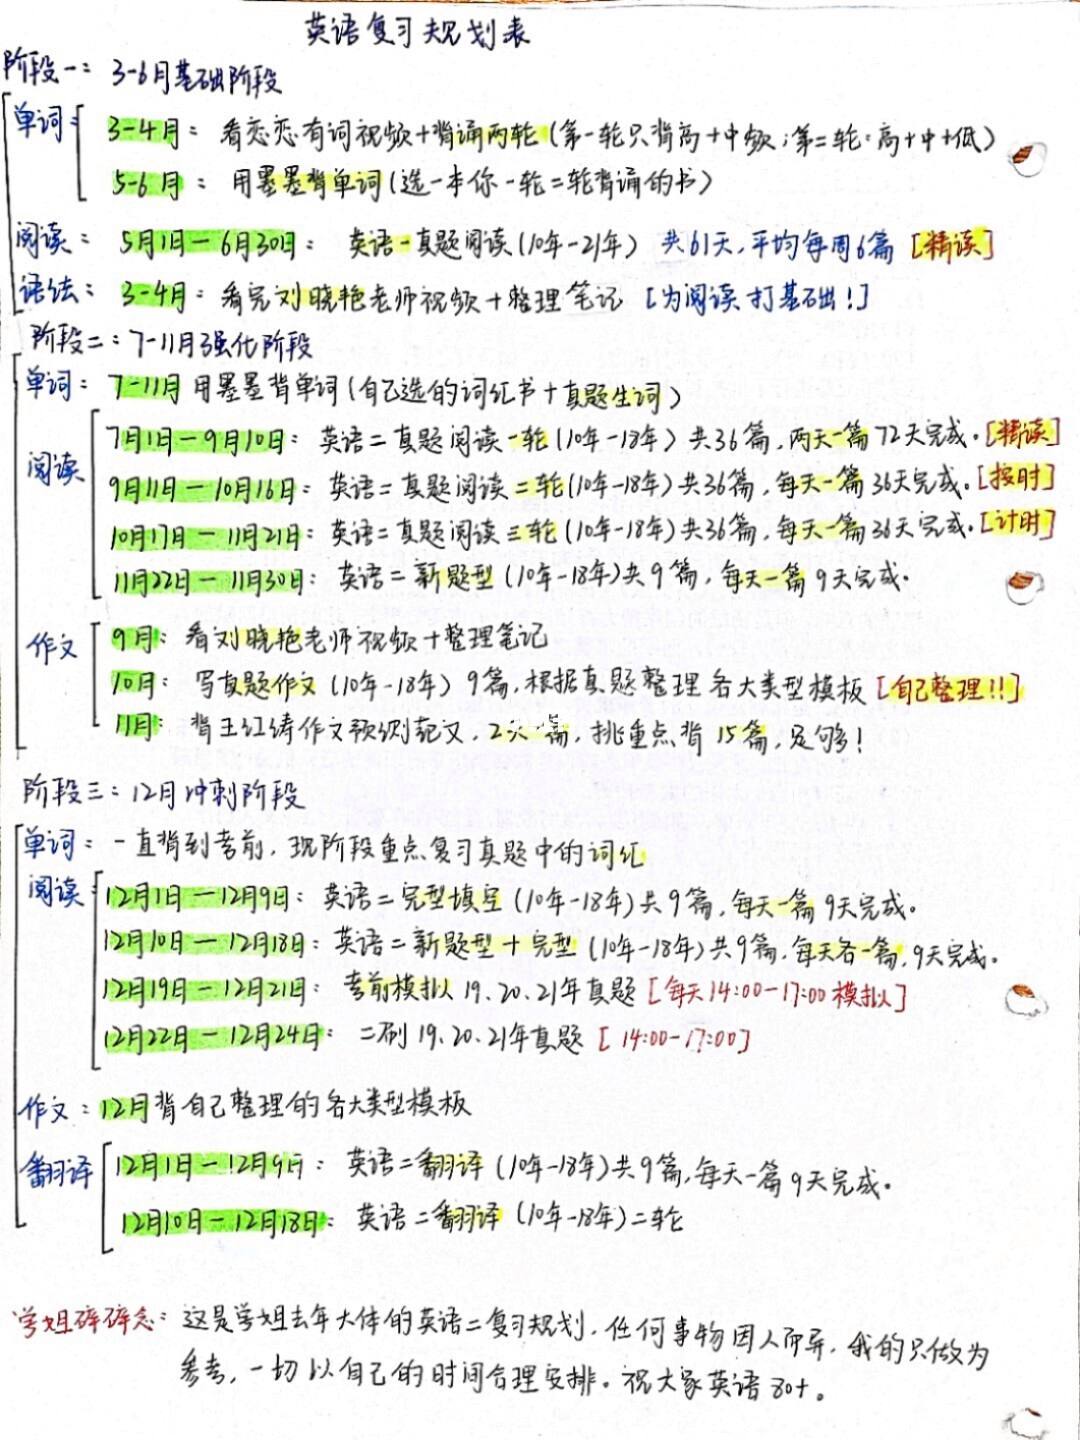 英语复习规划表
阶段一：3-6月基础阶段
单词：3-4月：看恋恋有词视频+背诵两轮（第一轮只背高+中频；第二轮：高+中+低）
5-6月：用墨墨背单词（选一本你一轮二轮背诵的书）
阅读：5月1日—6月30日：英语一真题阅读（10年-21年）共61天，平均每周6篇［精读］
语法：3-4月：看完刘晓艳老师视频+整理笔记［为阅读打基础！］
阶段二：7-11月强化阶段
单词：7-11月用墨墨背单词（自己选的词汇书+真题生词）
阅读
7月1日—9月10日：英语二真题阅读一轮（10年-18年）共36篇，两天一篇72天完成。［精读］
9月11日—10月16日：英语二真题阅读二轮（10年-18年）共36篇，每天一篇36天完成。［按时］
10月17日—11月21日：英语二真题阅读三轮（10年-18年）共36篇，每天一篇36天完成。［计时］
11月22日—11月30日：英语二新题型（10年-18年）共9篇，每天一篇9天完成。
作文
9月：看刘晓艳老师视频+整理笔记
10月：写真题作文（10年-18年）9篇，根据真题整理各大类型模板［自己整理!!］
11月：背王江涛作文预测范文，2天一篇，挑重点背15篇，足够！
阶段三：12月冲刺阶段
单词：一直背到考前，现阶段重点复习真题中的词汇
阅读
12月1日—12月9日：英语二完型填空（10年-18年）共9篇，每天一篇9天完成。
12月10日—12月18日：英语二新题型+完型（10年-18年）共9篇，每天各一篇，9天完成。
12月19日—12月21日：考前模拟19、20、21年真题［每天14:00-17:00模拟］
12月22日—12月24日：二刷19、20、21年真题［14:00-17:00］
作文：12月背自己整理的各大类型模板
翻译
12月1日—12月9日：英语二翻译（10年-18年）共9篇，每天一篇9天完成。
12月10日—12月18日：英语二翻译（10年-18年）二轮
学姐碎碎念：这是学姐去年大体的英语二复习规划，任何事物因人而异，我的只做为
参考，一切以自己的时间合理安排。祝大家英语80+。